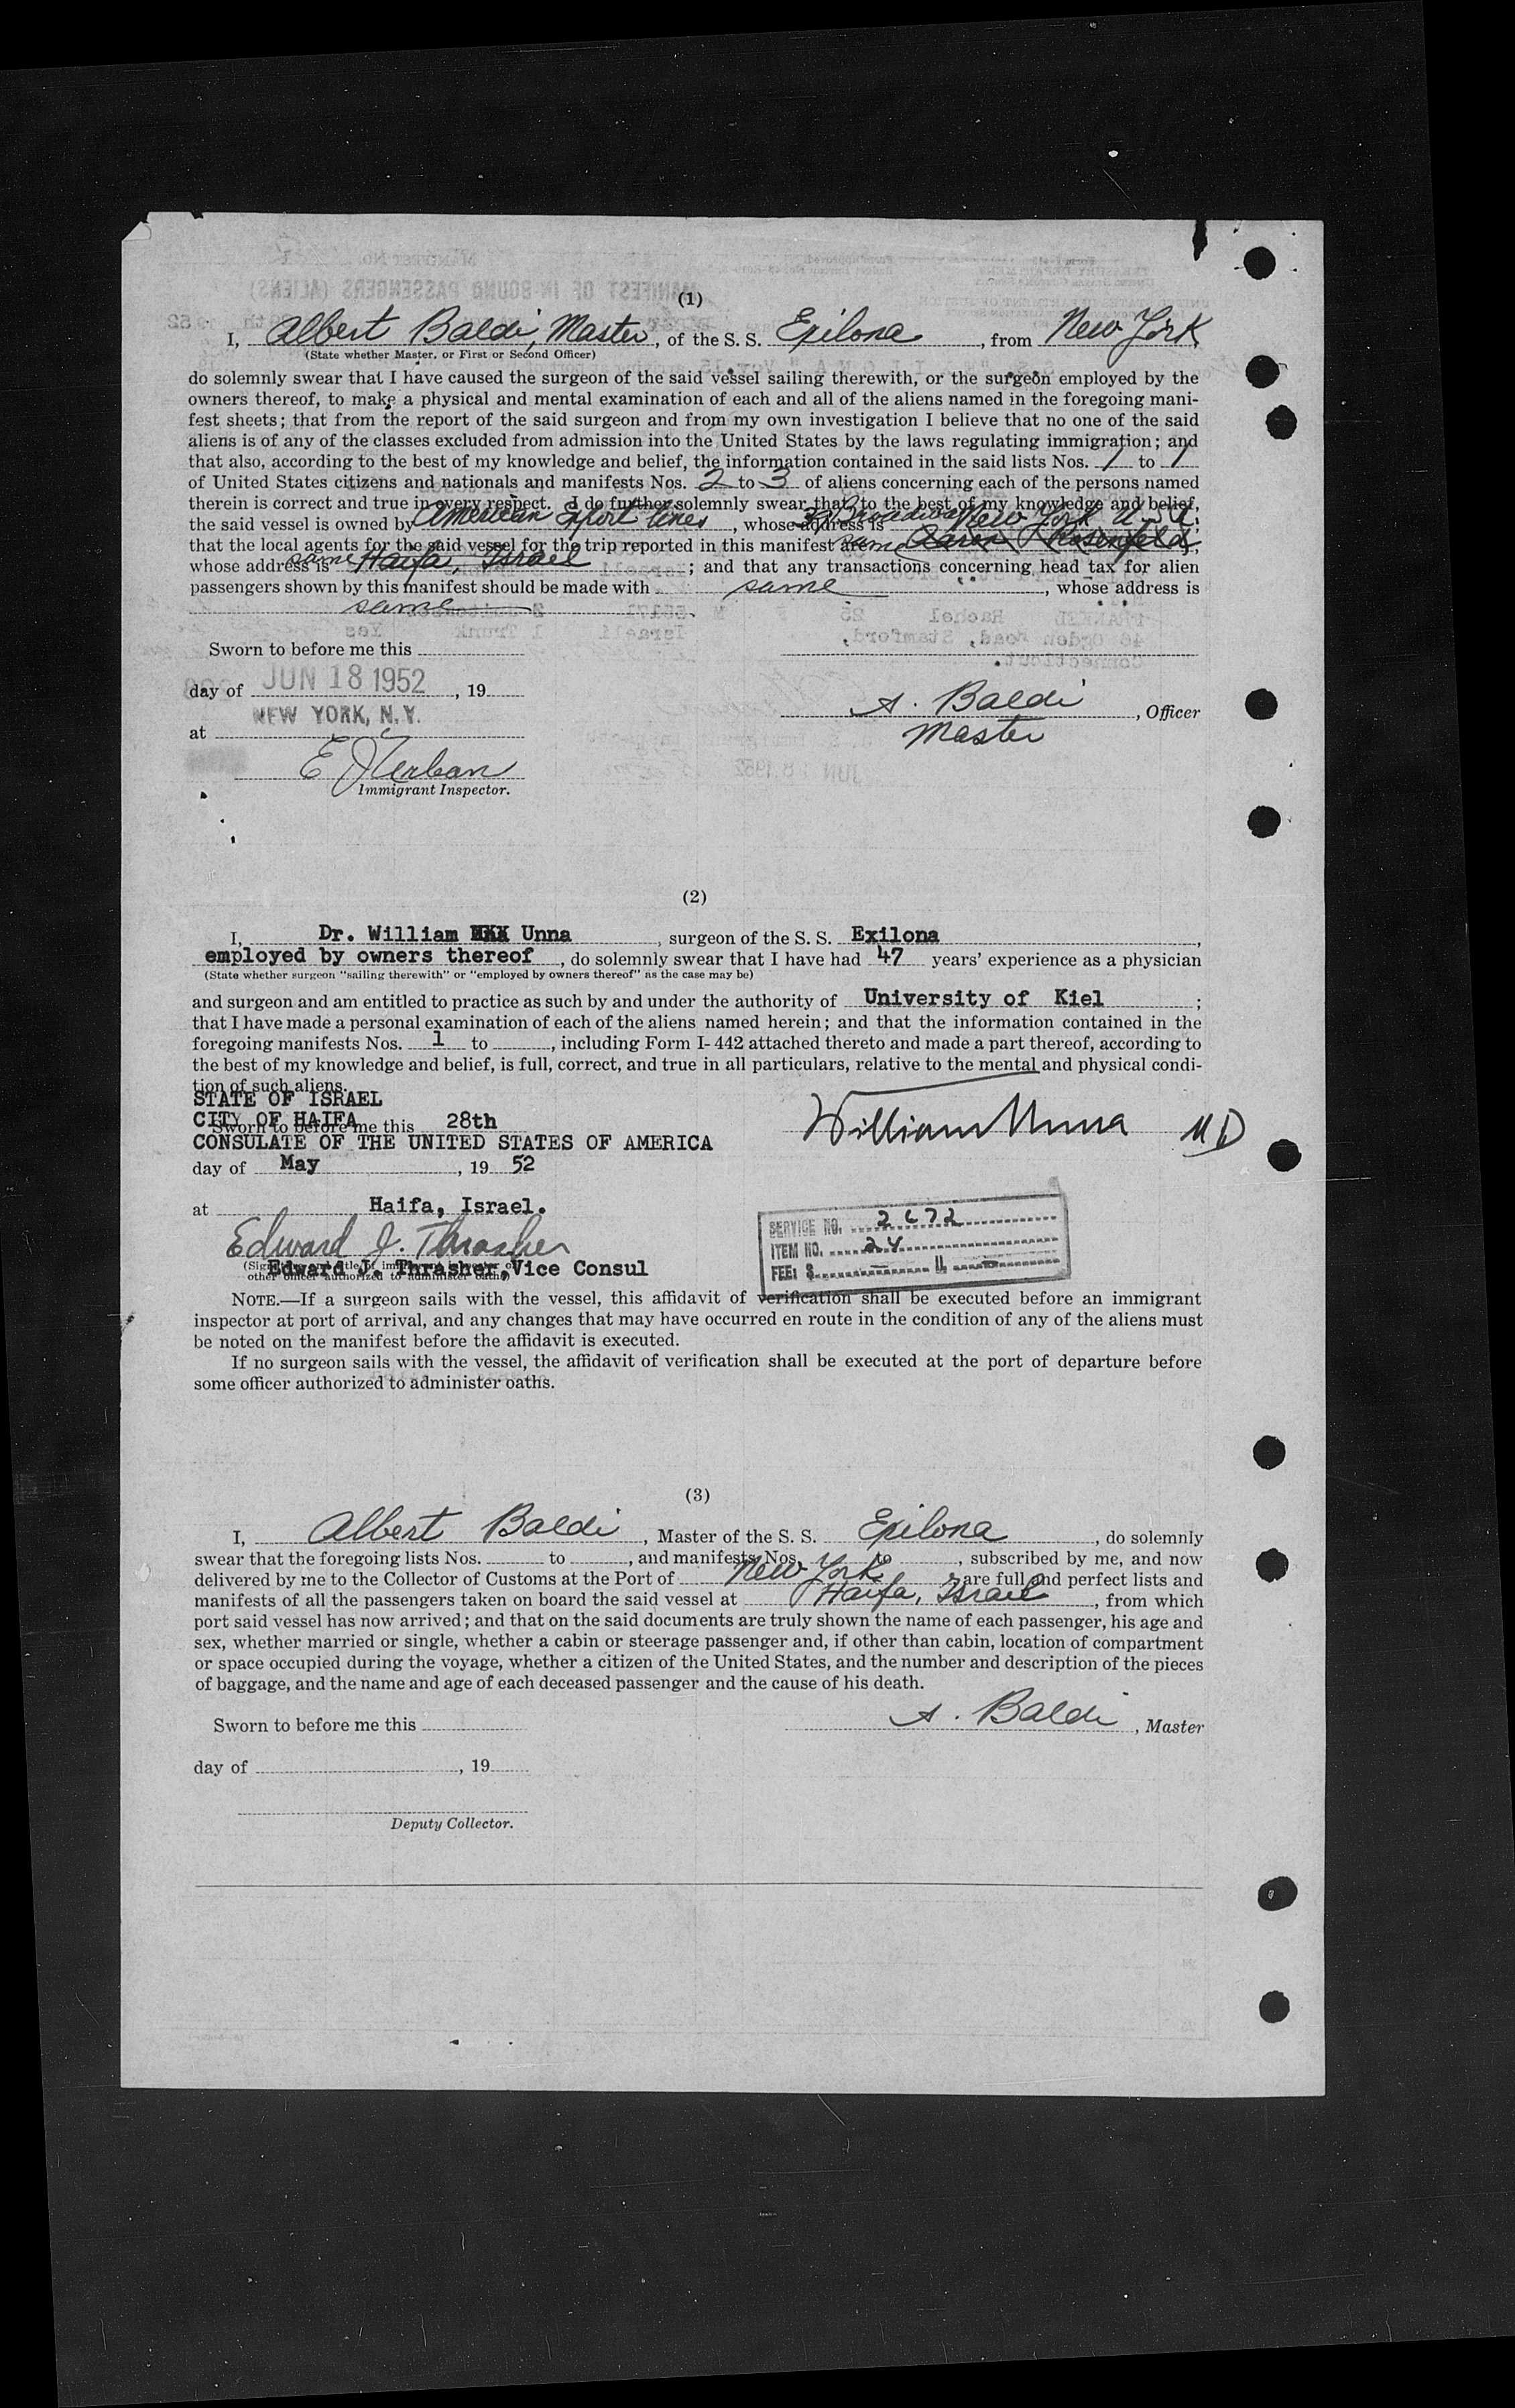 (1)
I, Albert Baldi, Master, of the S. S. Exilona, from New York,
(State whether Master, or First or Second Officer)
do solemnly swear that I have caused the surgeon of the said vessel sailing therewith, or the surgeon employed by the
owners thereof, to make a physical and mental examination of each and all of the aliens named in the foregoing mani-
fest sheets; that from the report of the said surgeon and from my own investigation I believe that no one of the said
aliens is of any of the classes excluded from admission into the United States by the laws regulating immigration; and
that also, according to the best of my knowledge and belief, the information contained in the said lists Nos. 1 to 1
of United States citizens and nationals and manifests Nos. 2 to 3 of aliens concerning each of the persons named
therein is correct and true in every respect. I do further solemnly swear that to the best of my knowledge and belief,
the said vessel is owned by American Export Lines, whose address is Broadway New York U.S.A.;
that the local agents for the said vessel for the trip reported in this manifest are same Aaron Rosenfeld,
whose address is same Haifa, Israel; and that any transactions concerning head tax for alien
passengers shown by this manifest should be made with same, whose address is
same
Sworn to before me this
day of JUN 18 1952, 19
NEW YORK, N. Y.
at
A. Baldi, Officer
Master
Immigrant Inspector.
(2)
I, Dr. William Unna, surgeon of the S. S. Exilona,
employed by owners thereof, do solemnly swear that I have had 47 years' experience as a physician
(State whether surgeon "sailing therewith" or "employed by owners thereof" as the case may be)
and surgeon and am entitled to practice as such by and under the authority of University of Kiel;
that I have made a personal examination of each of the aliens named herein; and that the information contained in the
foregoing manifests Nos. 1 to , including Form I-442 attached thereto and made a part thereof, according to
the best of my knowledge and belief, is full, correct, and true in all particulars, relative to the mental and physical condi-
tion of such aliens.
STATE OF ISRAEL
CITY OF HAIFA
Sworn to before me this 28th
William Unna MD
CONSULATE OF THE UNITED STATES OF AMERICA
day of May, 19 52
at Haifa, Israel.
SERVICE NO. 2672
ITEM NO. 24
FEE: $
Edward J. Thrasher
Edward J. Thrasher, Vice Consul
other officer authorized to administer oaths)
NOTE.—If a surgeon sails with the vessel, this affidavit of verification shall be executed before an immigrant
inspector at port of arrival, and any changes that may have occurred en route in the condition of any of the aliens must
be noted on the manifest before the affidavit is executed.
If no surgeon sails with the vessel, the affidavit of verification shall be executed at the port of departure before
some officer authorized to administer oaths.
(3)
I, Albert Baldi, Master of the S. S. Exilona, do solemnly
swear that the foregoing lists Nos. to , and manifests Nos. to , subscribed by me, and now
delivered by me to the Collector of Customs at the Port of New York are full and perfect lists and
manifests of all the passengers taken on board the said vessel at Haifa, Israel, from which
port said vessel has now arrived; and that on the said documents are truly shown the name of each passenger, his age and
sex, whether married or single, whether a cabin or steerage passenger and, if other than cabin, location of compartment
or space occupied during the voyage, whether a citizen of the United States, and the number and description of the pieces
of baggage, and the name and age of each deceased passenger and the cause of his death.
A. Baldi, Master
Sworn to before me this
day of , 19
Deputy Collector.